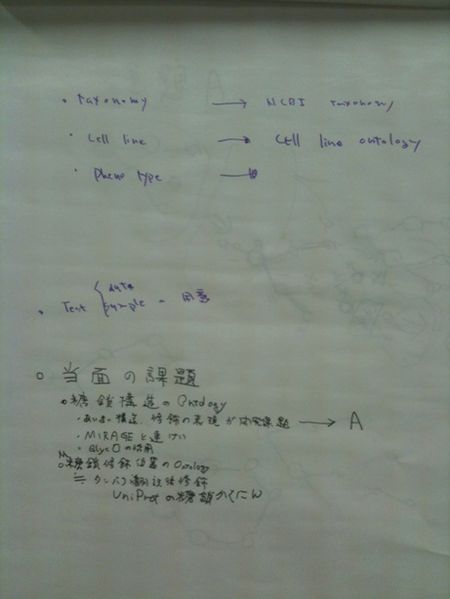 ・Taxonomy → NCBI taxonomy
・Cell line → Cell line ontology
・Pheno type →
・Test { data sample の 用意
○ 当面の課題
○糖鎖構造のOntology
・あいまい構造、修飾の表現が 課題 → A
・MIRAGEと連けい
・GlycOの
○糖鎖修飾位置のOntology
≒ タンパク翻訳後修飾
UniProtの糖鎖かくにん